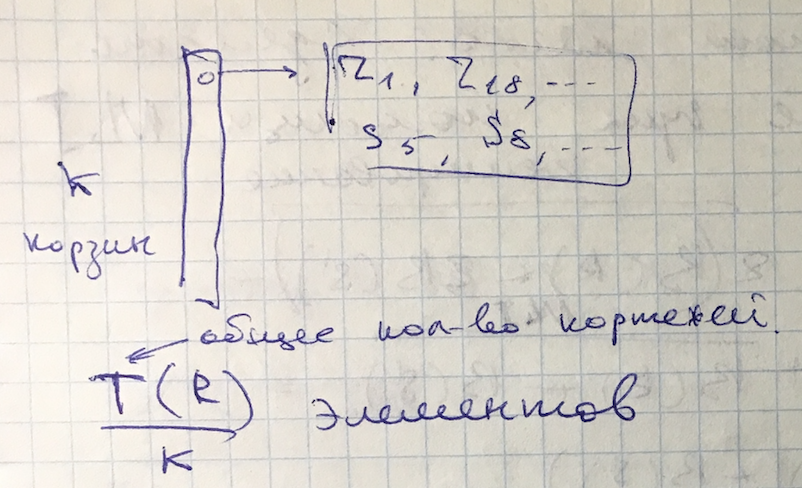 r₁, r₁₈, ---
s₅, s₈, ---
k
корзин
общее кол-во кортежей.
T(R)
k
элементов